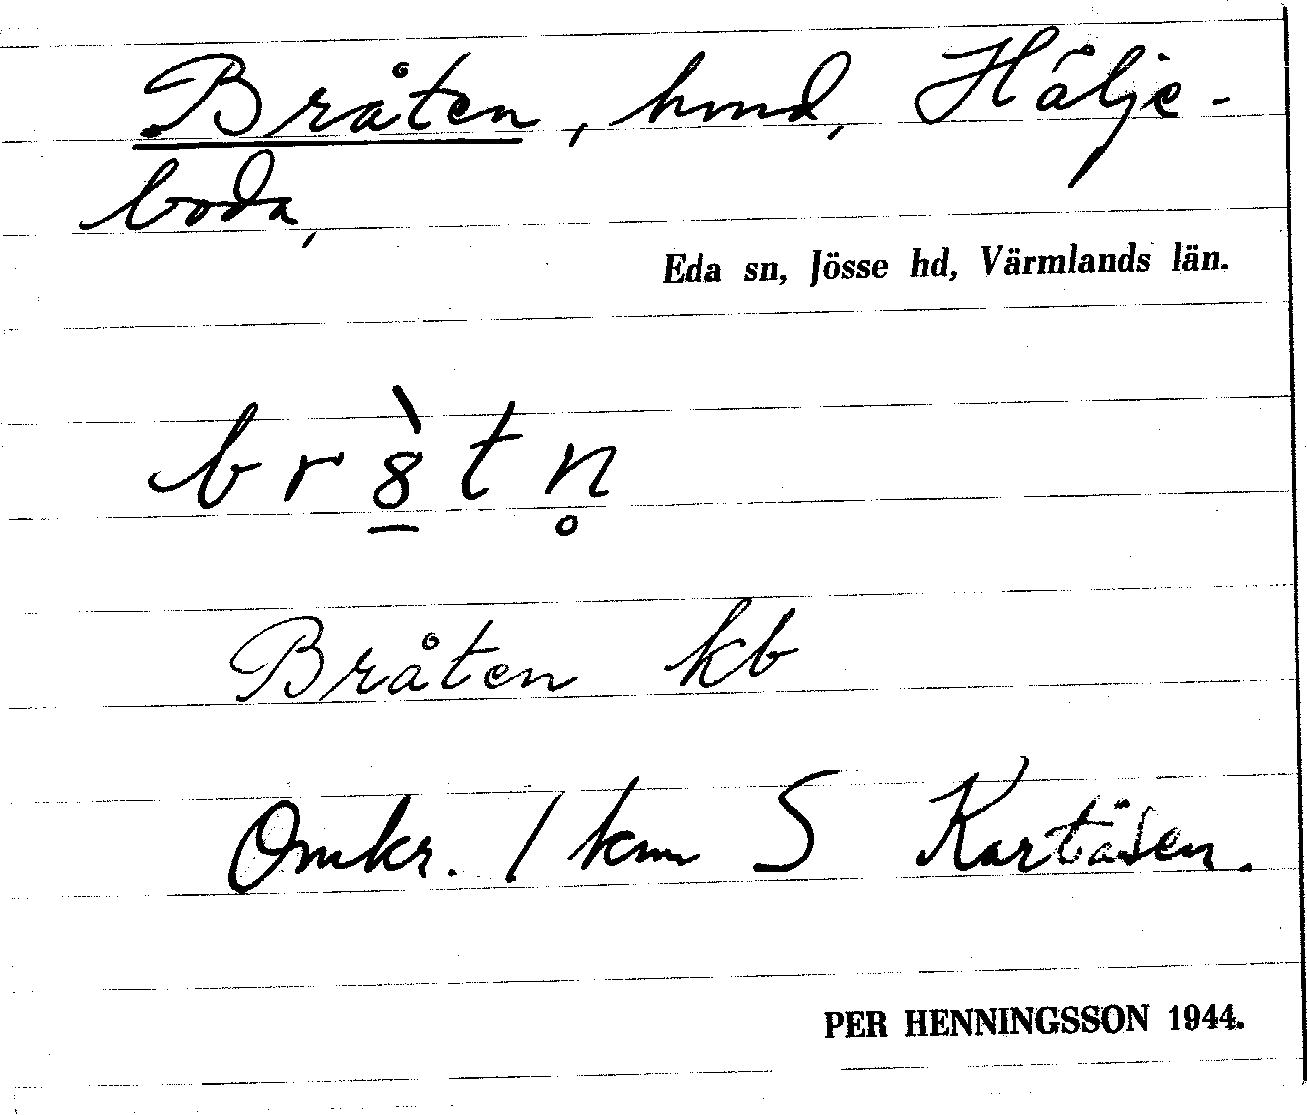 Bråten, hmd, Hälje-
boda,
Eda sn, Jösse hd, Värmlands län.
br8̱̀tn̥
Bråten kb
Omkr. 1 km S Kartåsen.
PER HENNINGSSON 1944.